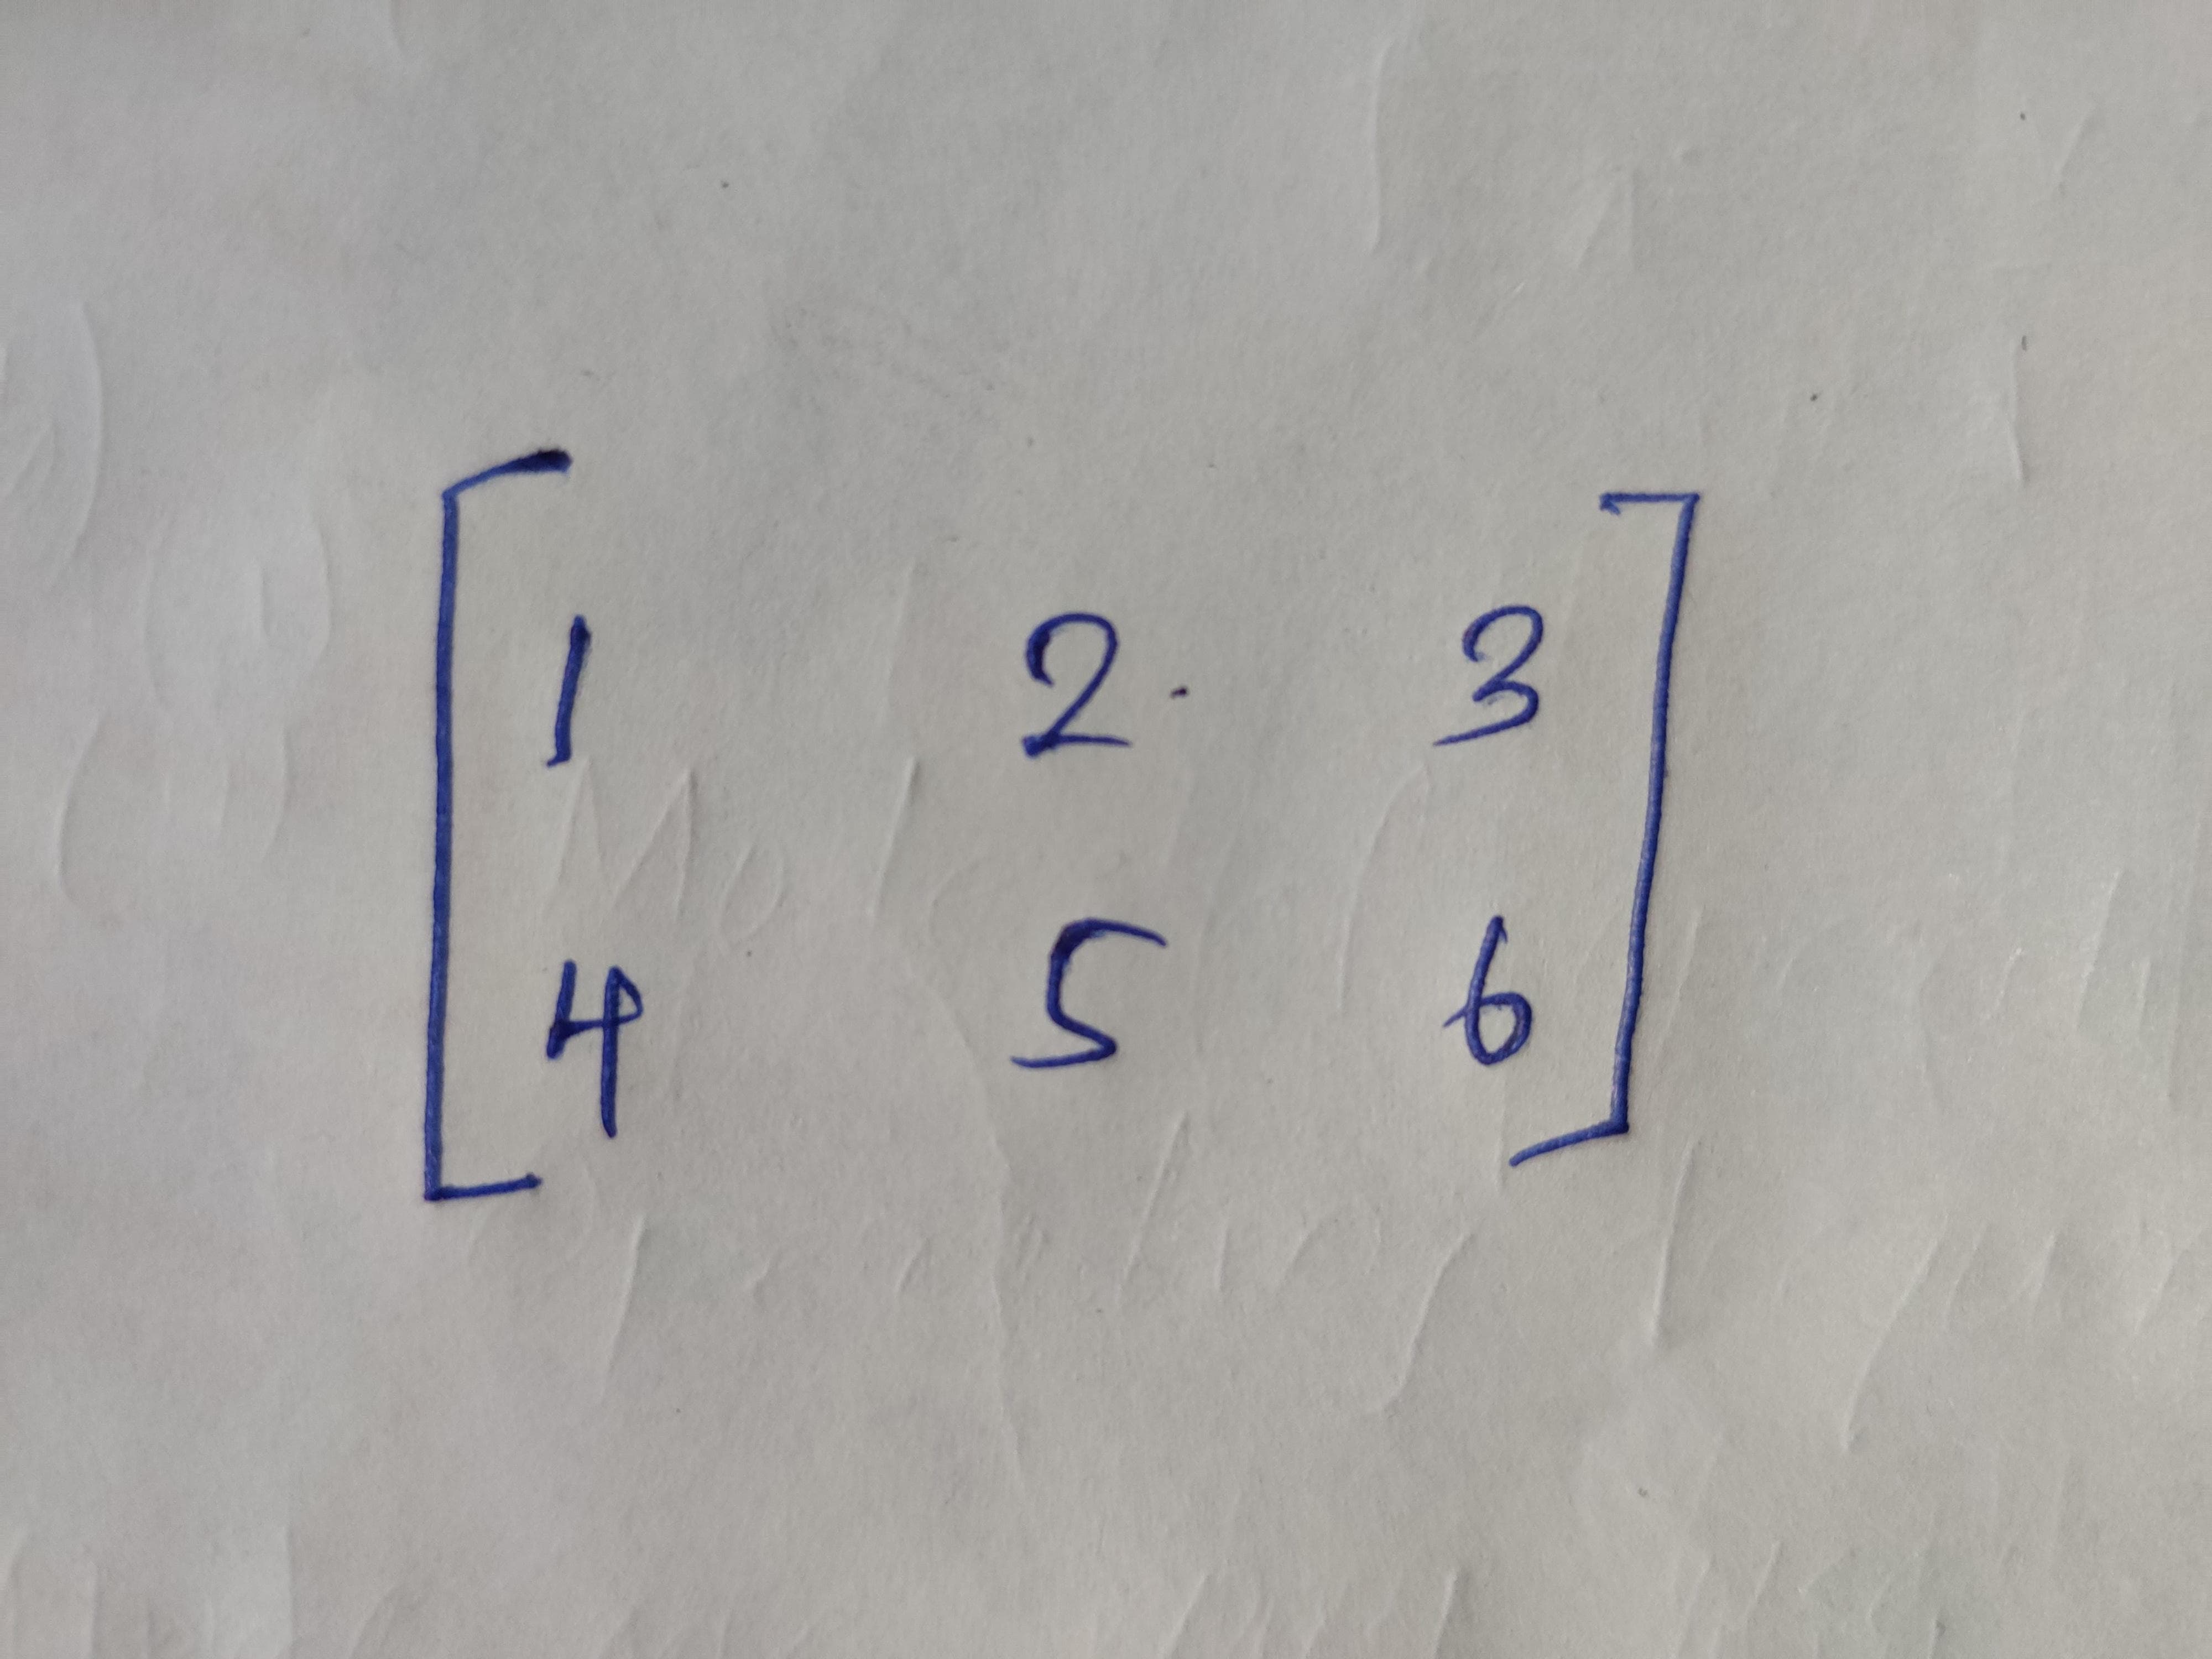 [1 2 3
4 5 6]